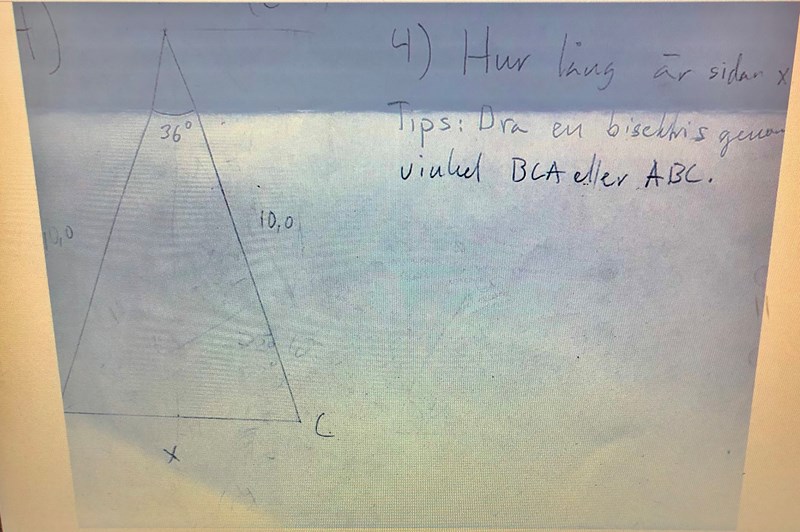 4) Hur lång är sidan x
Tips: Dra en bisektris genom
vinkel BCA eller ABC.
36°
10,0
10,0
C
x